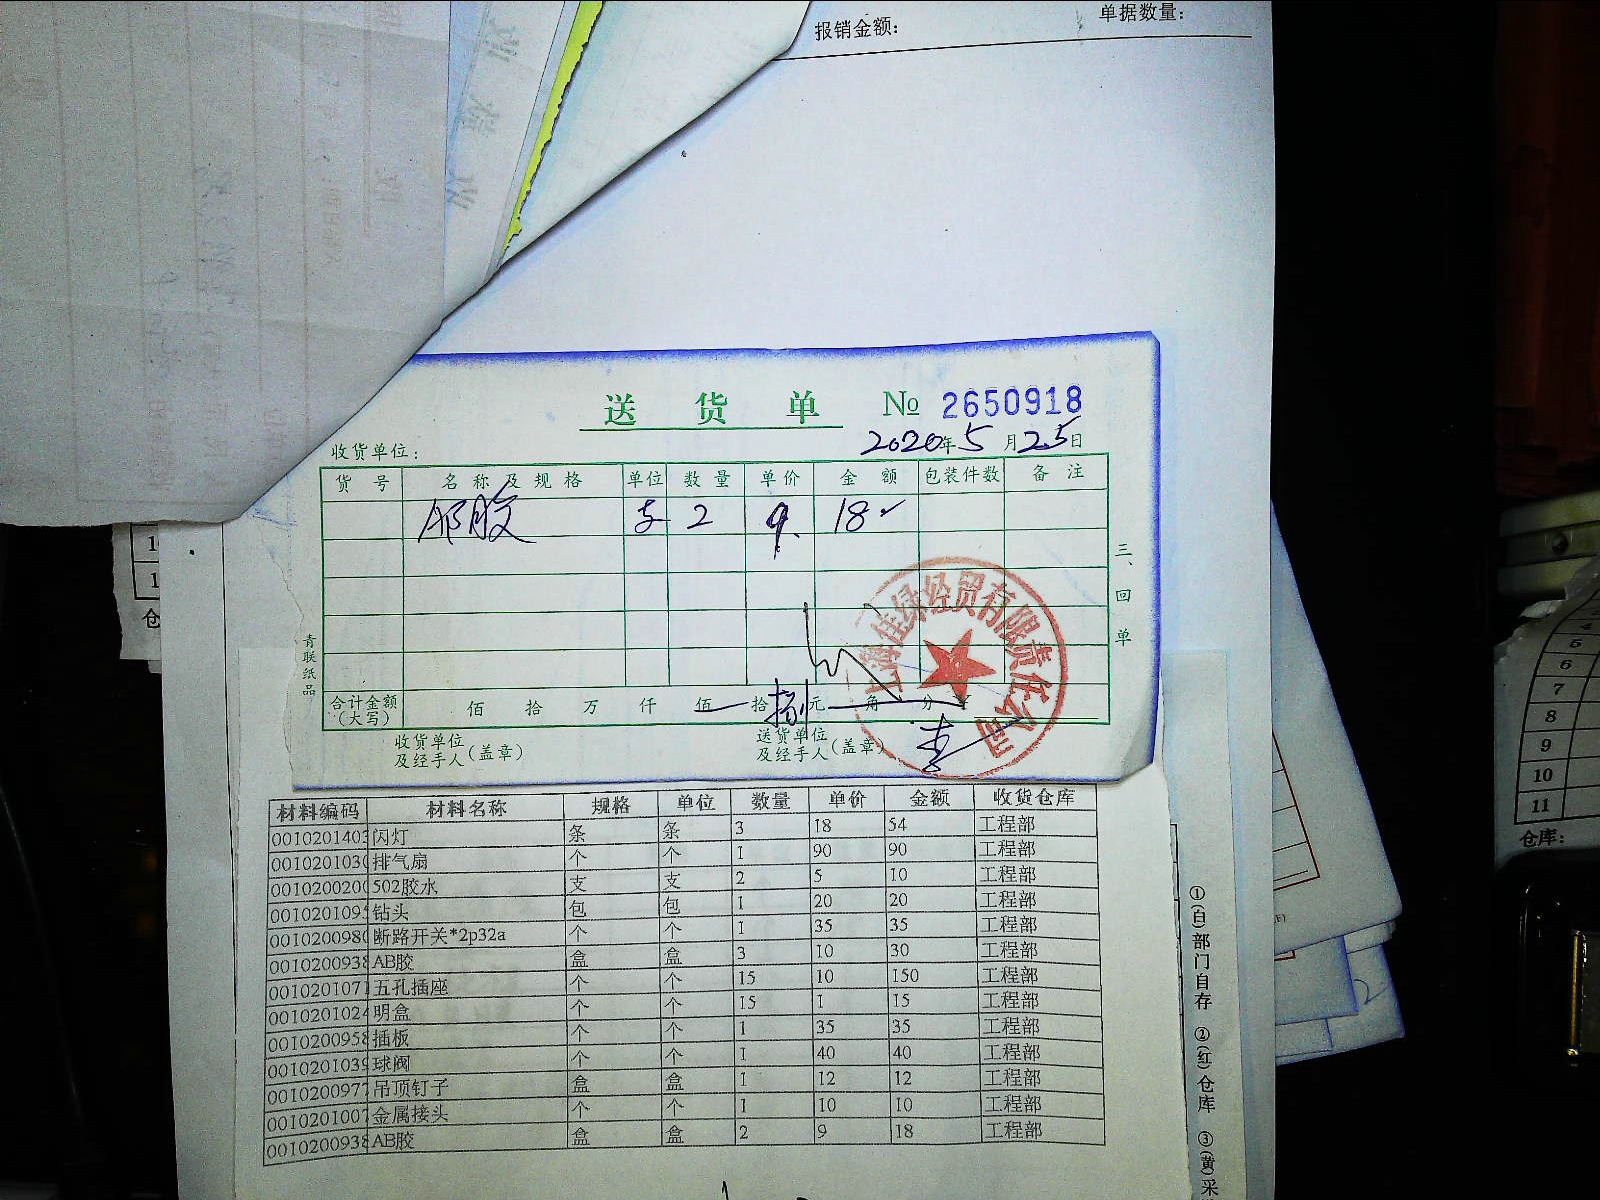 报销金额：
单据数量：
送 货 单 № 2650918
2020年5月25日
收货单位：
货 号 名称及规格 单位 数量 单价 金 额 包装件数 备 注
AB胶 支 2 9. 18
三、回单
青联纸品
上海佳绿经贸有限责任公司
合计金额（大写） 佰 拾 万 仟 佰 拾 捌 元 角 分 ¥
收货单位及经手人（盖章）
送货单位及经手人（盖章）
材料编码 材料名称 规格 单位 数量 单价 金额 收货仓库
001020140 闪灯 条 条 3 18 54 工程部
001020103 排气扇 个 个 1 90 90 工程部
001020020 502胶水 支 支 2 5 10 工程部
001020109 钻头 包 包 1 20 20 工程部
001020098 断路开关*2p32a 个 个 1 35 35 工程部
001020093 AB胶 盒 盒 3 10 30 工程部
001020107 五孔插座 个 个 15 10 150 工程部
001020102 明盒 个 个 15 1 15 工程部
001020095 插板 个 个 1 35 35 工程部
001020103 球阀 个 个 1 40 40 工程部
001020097 吊顶钉子 盒 盒 1 12 12 工程部
001020100 金属接头 个 个 1 10 10 工程部
001020093 AB胶 盒 盒 2 9 18 工程部
①(白)部门自存 ②(红)仓库 ③(黄)采
4
5
6
7
8
9
10
11
仓库：